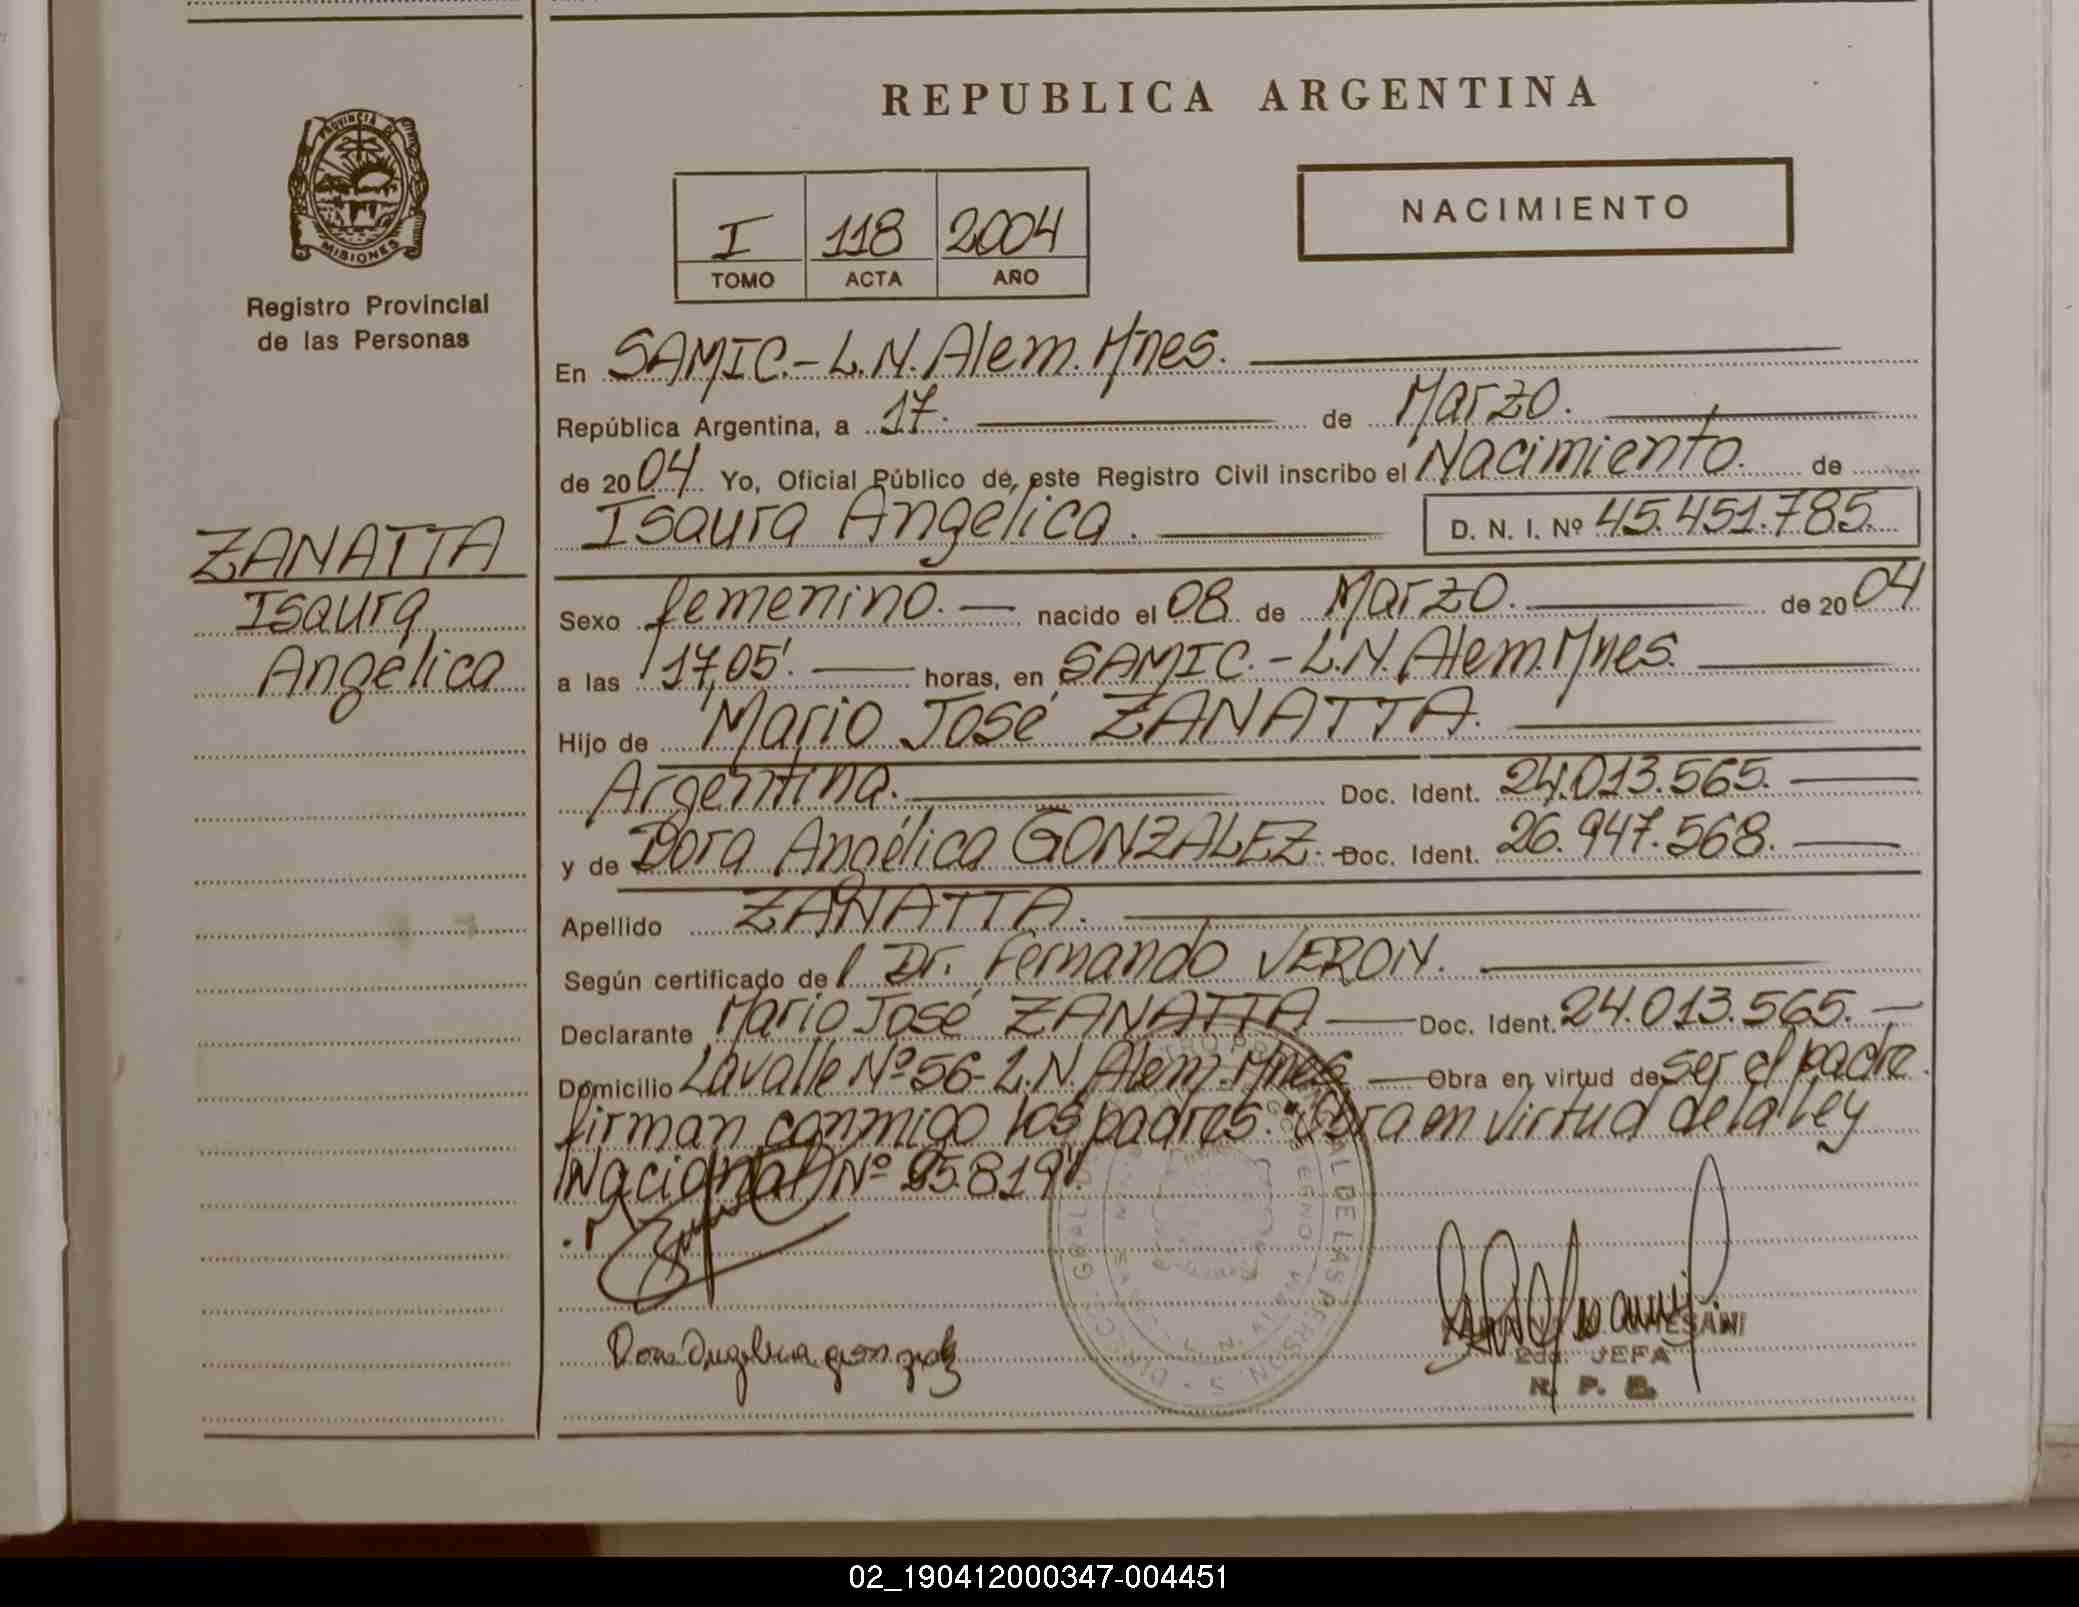 REPUBLICA ARGENTINA
PROVINCIA DE
MISIONES
Registro Provincial
de las Personas
I 118 2004
TOMO ACTA AÑO
NACIMIENTO
En SAMIC.-L.N.Alem.Mnes.
República Argentina, a 17. de Marzo.
de 2004 Yo, Oficial Público de este Registro Civil inscribo el Nacimiento. de
Isaura Angélica. D. N. I. Nº 45.451.785.
ZANATTA
Isaura
Angélica
Sexo femenino.— nacido el 08 de Marzo. de 2004
a las 17,05'. horas, en SAMIC.-L.N.Alem.Mnes.
Hijo de Mario José ZANATTA.
Argentina. Doc. Ident. 24.013.565.
y de Dora Angélica GONZALEZ.- Doc. Ident. 26.947.568.
Apellido ZANATTA.
Según certificado del Dr. Fernando VERON.
Declarante Mario José ZANATTA — Doc. Ident. 24.013.565.-
Domicilio Lavalle Nº56-L.N.Alem.Mnes — Obra en virtud de ser el padre.
firman conmigo los padres. "Obra en virtud de la ley
Nacional Nº 25.819".
Dora Angelica gonzalez
2da. JEFA
R. P. P.
02_190412000347-004451